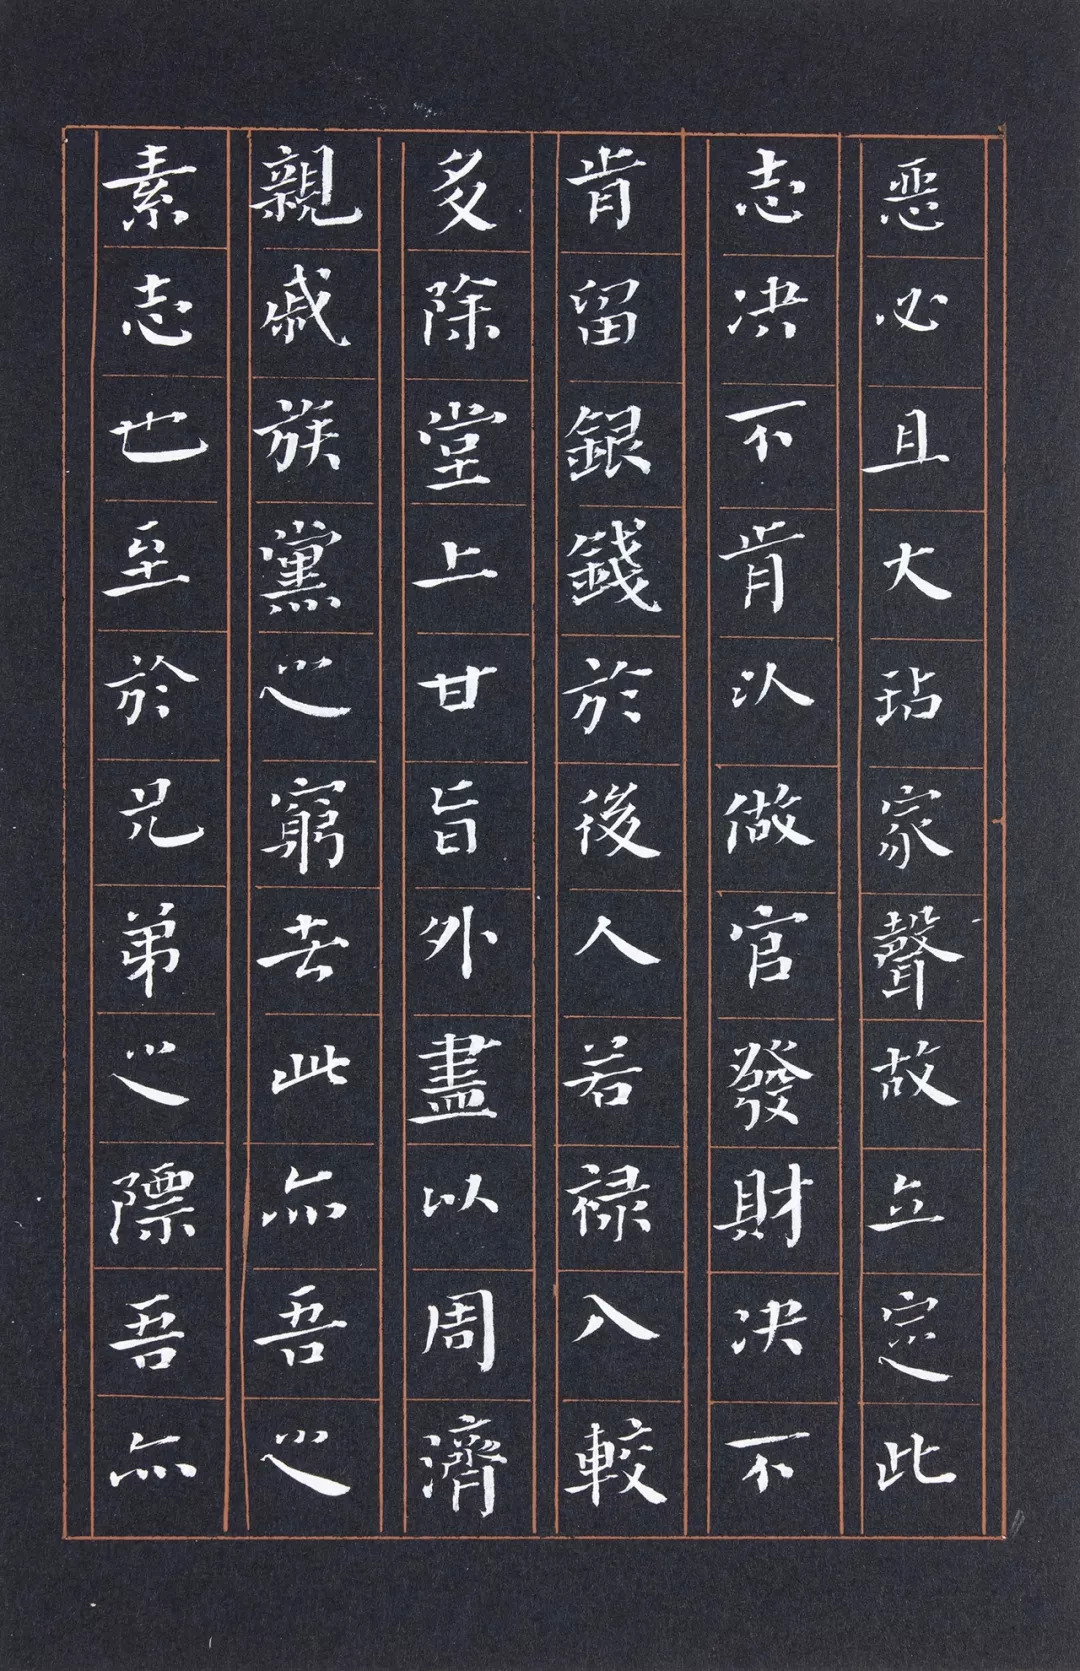 惡必且大玷家聲故立定此
志决不肯以做官發財决不
肯留銀錢於後人若禄入較
多除堂上甘旨外盡以周濟
親戚族黨之窮者此亦吾之
素志也至於兄弟之際吾亦